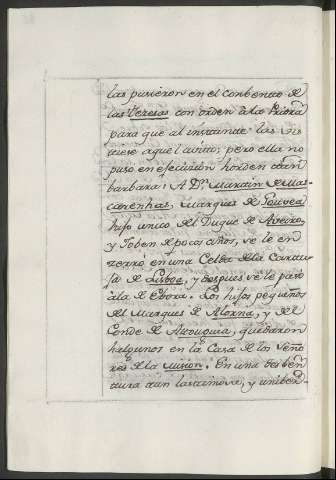 las pusieron en el conbento de
las Teresas con orden â la Priora
para que al instante las vis
tiese aquel avito; pero ella no
puso en efecusion horden tan
barbara: A Dn. Martin de Mas-
carenhas, Marques de Gouvea
hijo unico del Duque de Aveiro,
y Joben de pocos años, se le en
zerró en una Celda de la Cartu
ja de Lisboa, y despues se le pasó
â la de Ebora. Los hijos pequeños
del Marques de Alorna, y del
Conde de Atouguia, quedaron
halgunos en la Casa de los Seño
res de la Mision. En una desben
tura tan lastimosa, y uniber-